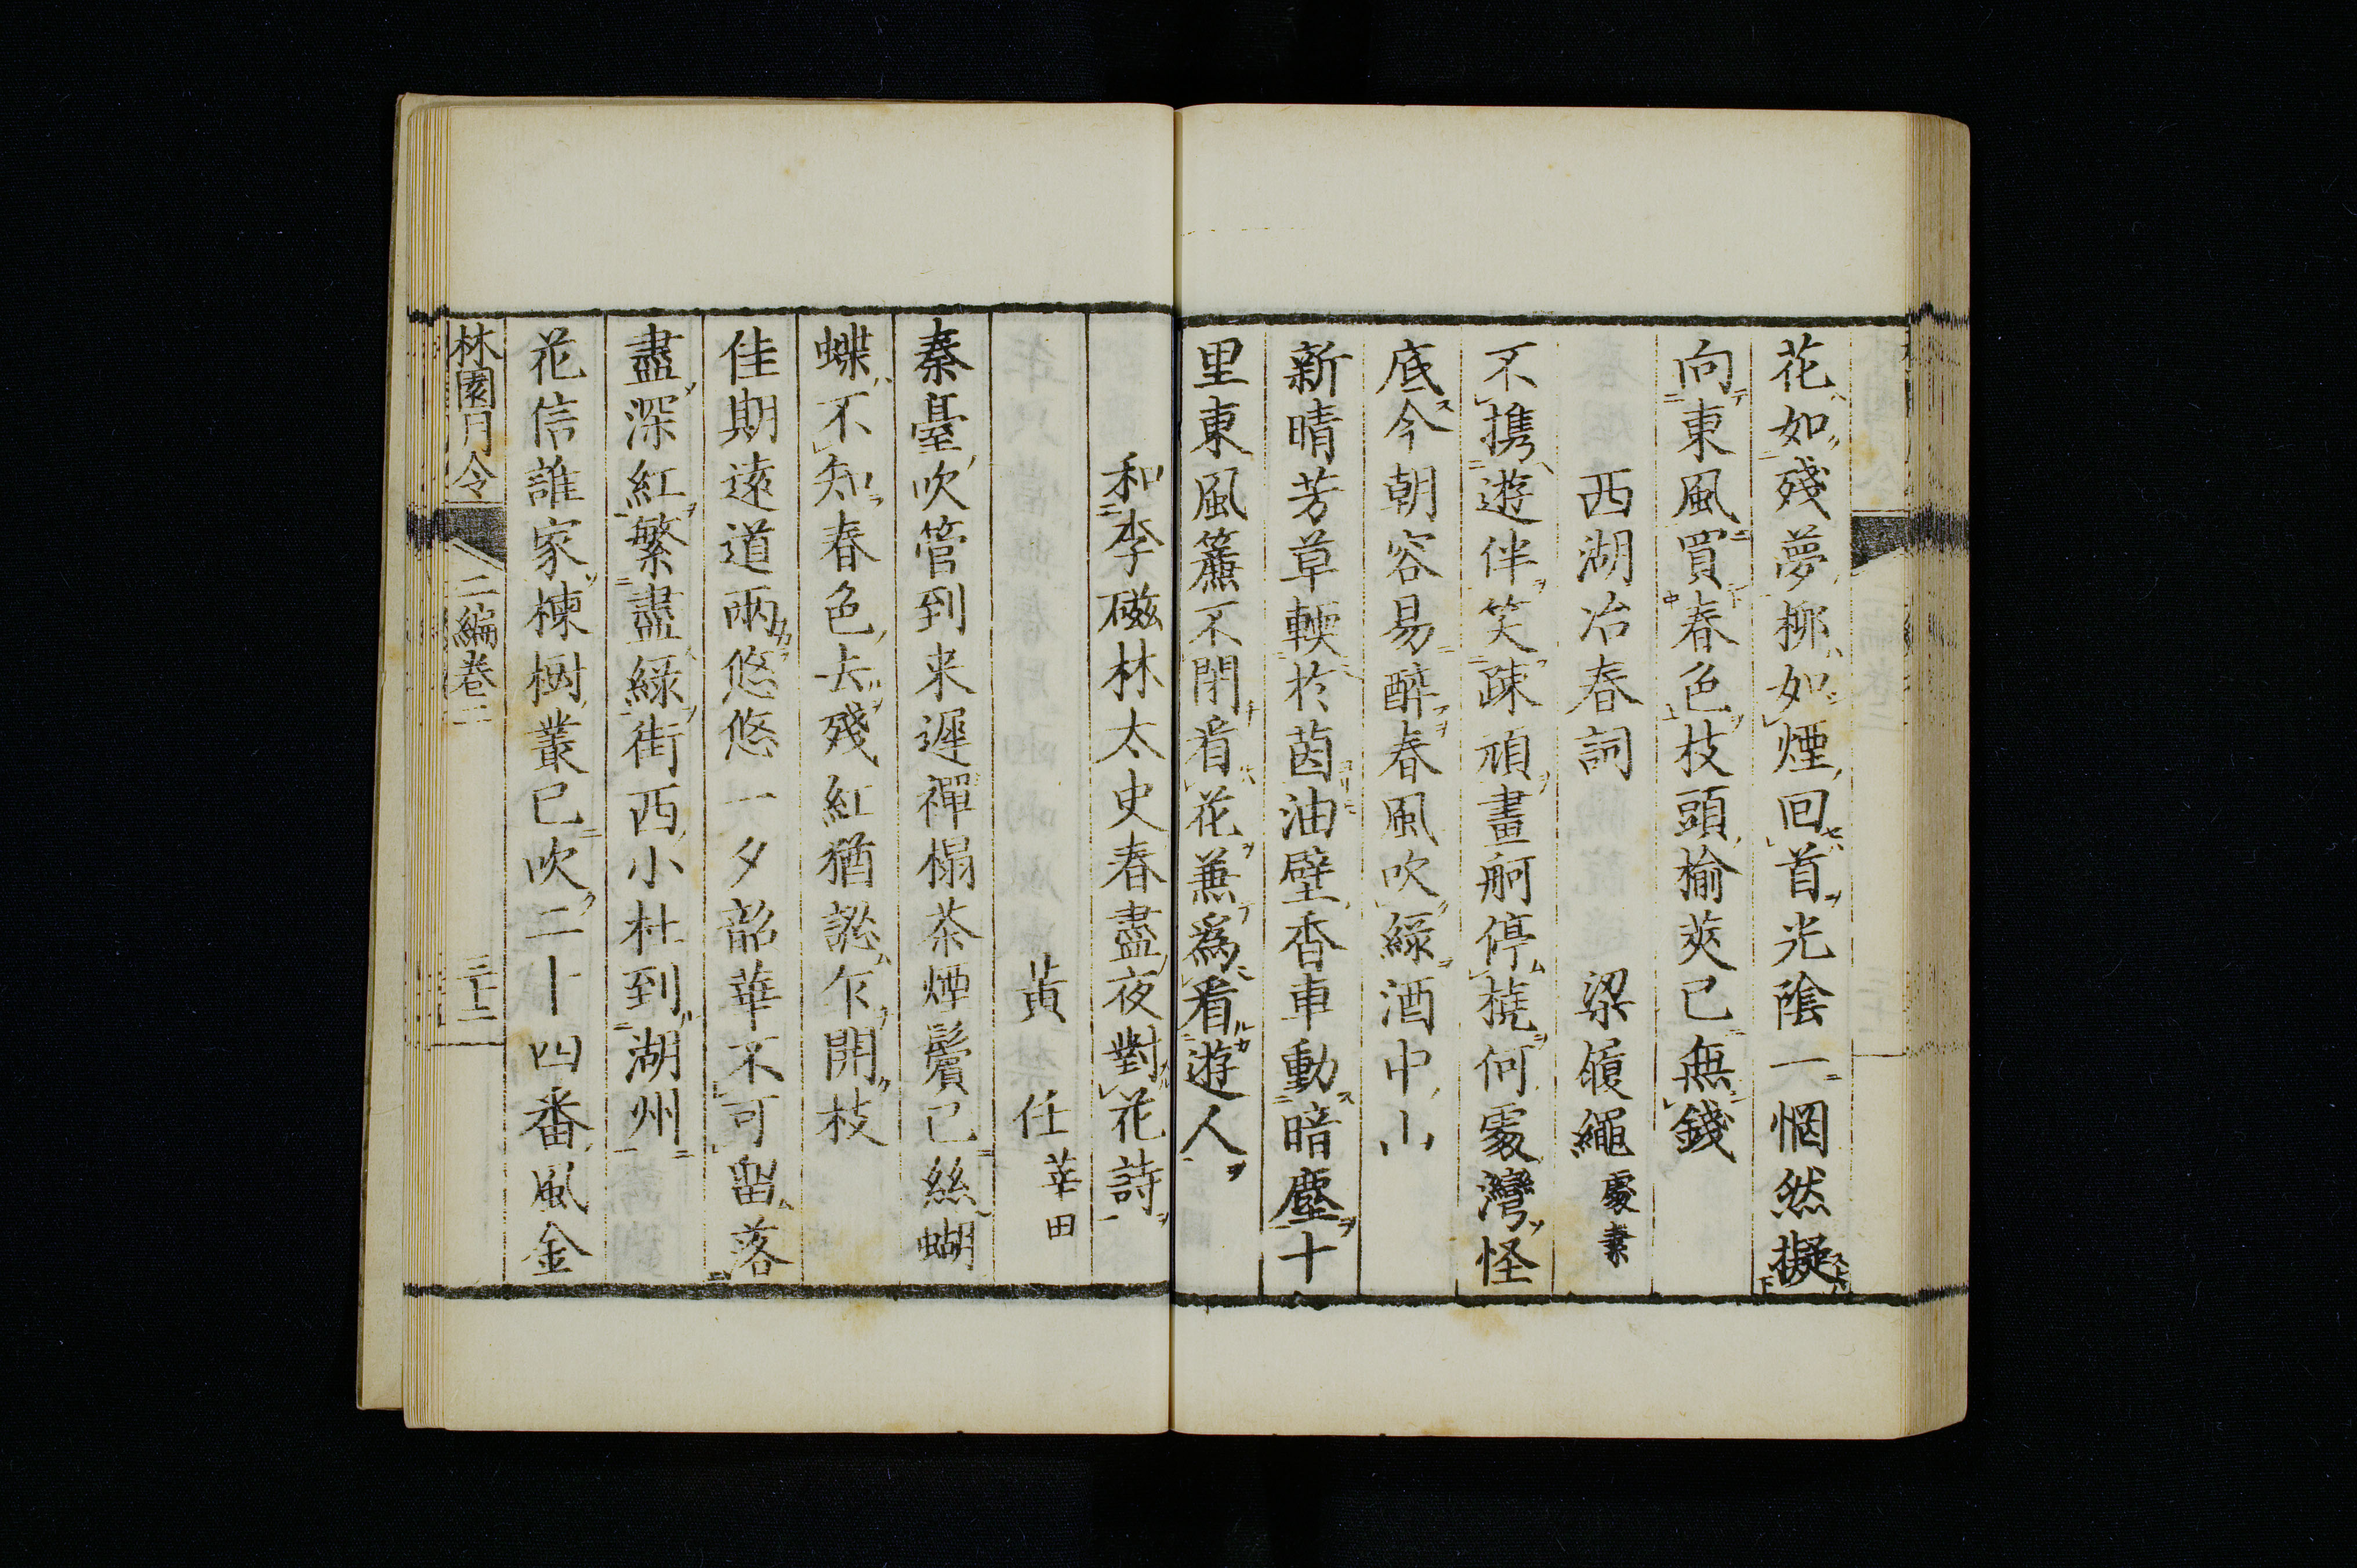 花如殘夢柳如煙回首光陰一惘然擬
向東風買春色枝頭楡莢已無錢
西湖冶春詞　梁履繩處素
不携遊伴笑疎頑畫舸停橈何處灣怪
底今朝容易醉春風吹緑酒中山
新晴芳草輭於茵油壁香車動暗塵十
里東風簾不閉看花兼爲看遊人
和李磁林太史春盡夜對花詩
黃　任莘田
秦臺吹管到来遲禪榻茶煙鬢已絲蝴
蝶不知春色去殘紅猶認乍開枝
佳期遠道兩悠悠一夕韶華不可畱落
盡深紅繁盡緑街西小杜到湖州
花信誰家楝樹叢已吹二十四番風金
林園月令　二編卷二　三十二